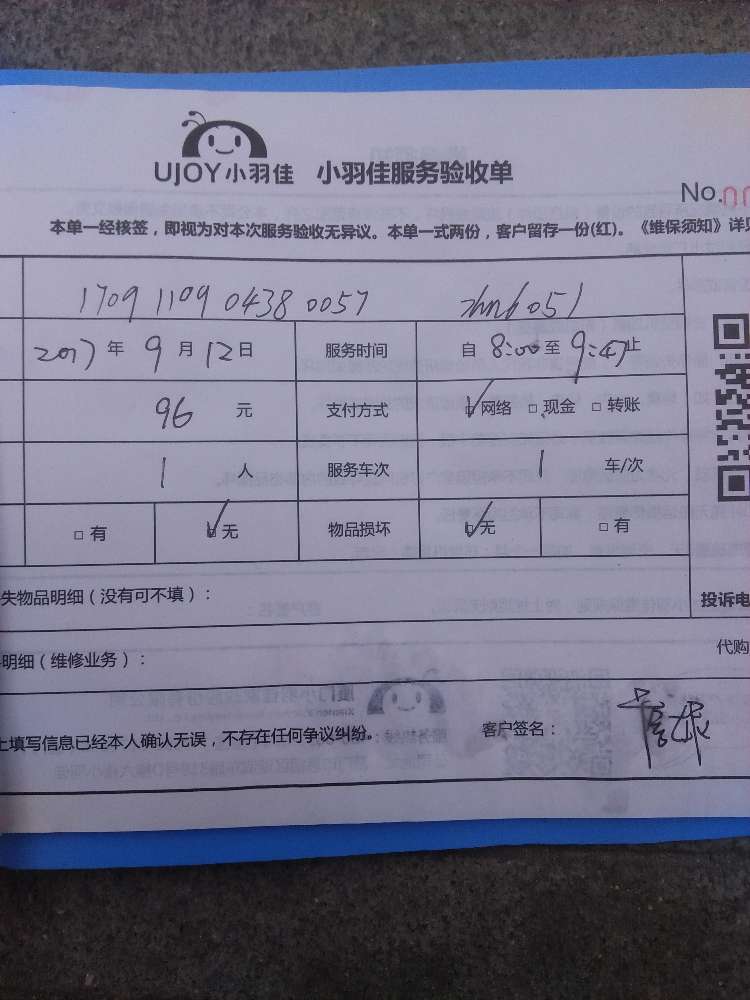 UJOY小羽佳 小羽佳服务验收单
No.
本单一经核签，即视为对本次服务验收无异议。本单一式两份，客户留存一份(红)。《维保须知》详见
1709 1109 0438 0057
2017年9月12日 服务时间 自 8:00 至 9:47 止
96 元 支付方式 ☑网络 □现金 □转账
1 人 服务车次 1 车/次
□有 ☑无 物品损坏 ☑无 □有
失物品明细（没有可不填）：
投诉电
明细（维修业务）：
代购
上填写信息已经本人确认无误，不存在任何争议纠纷。 客户签名：